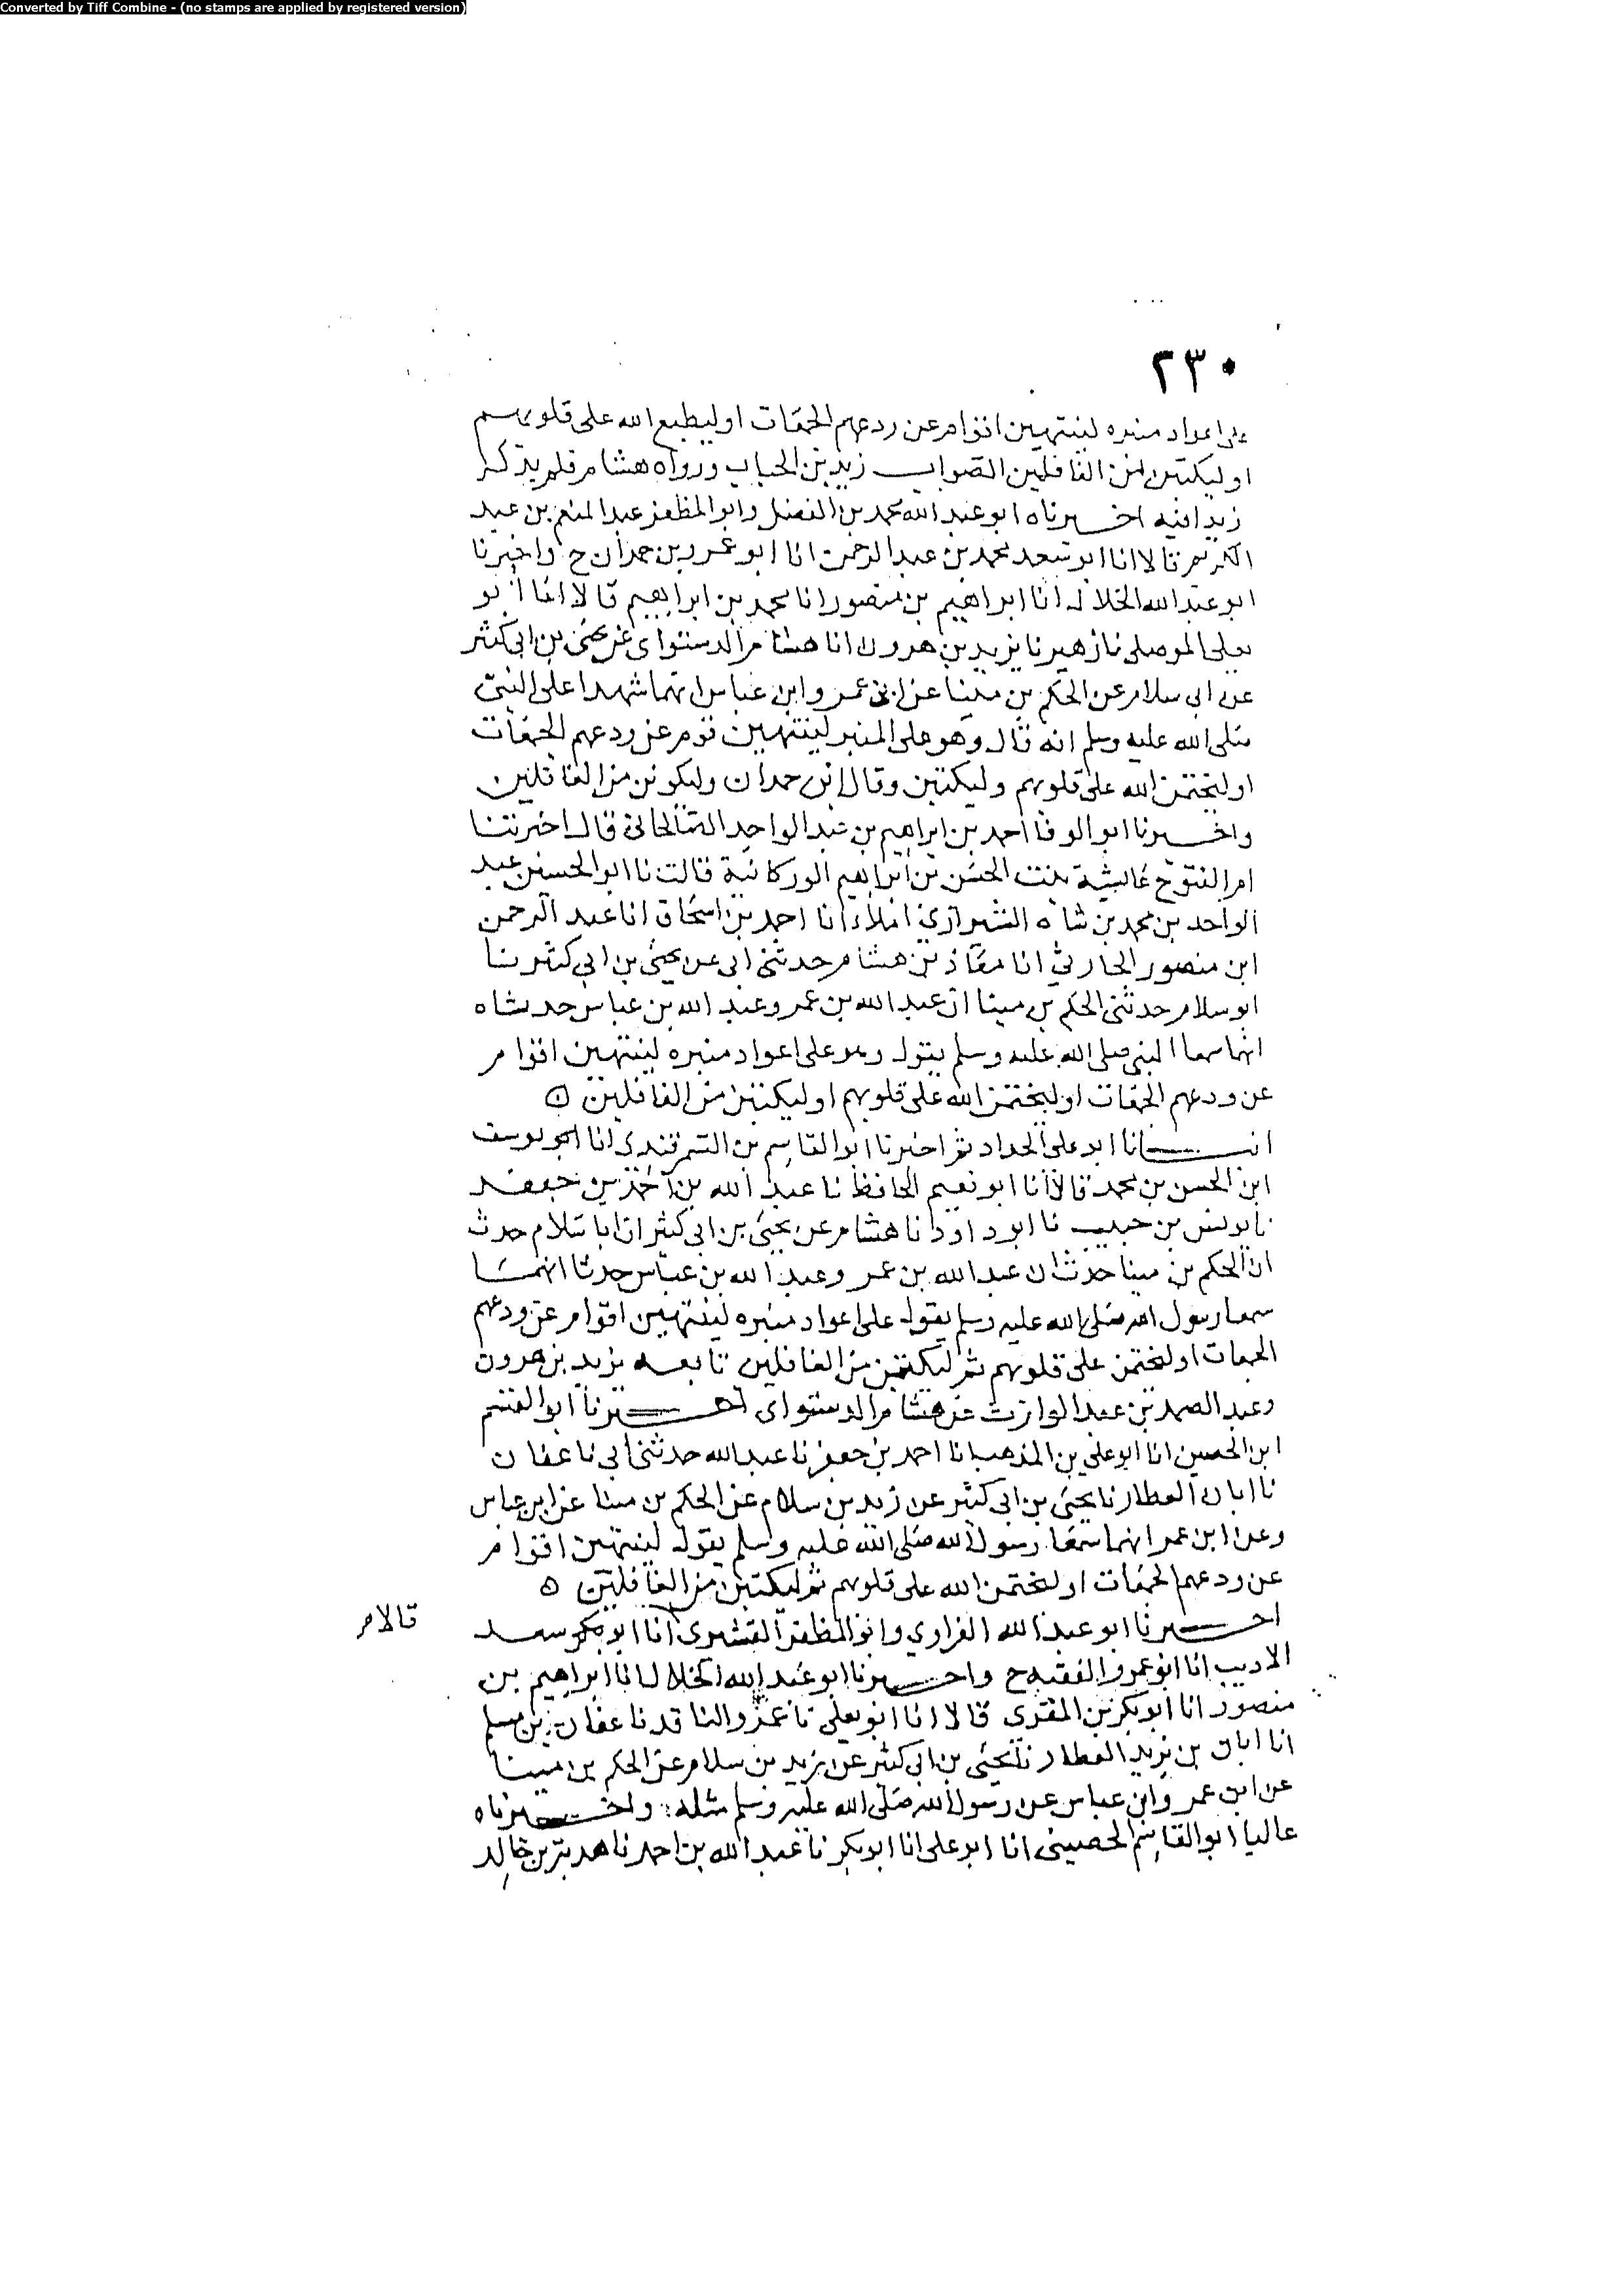 Converted by Tiff Combine - (no stamps are applied by registered version)
٢٣٠
على اعواد منبره لينتهين اقوام عن ردعهم الجمعات او ليطبع الله على قلوبهم
او ليكتبن من الغافلين الصواب زيد بن الحباب ورواه هشام فلم يذكر
زيدا فيه اخبرناه ابو عبد الله محمد بن الفضل وابو المظفر عبد المنعم بن عبد
الكريم قالا انا ابو سعد محمد بن عبد الرحمن انا ابو عمرو بن حمدان ح واخبرنا
ابو عبد الله الخلال انا ابراهيم بن منصور انا محمد بن ابراهيم قالا انا ابو
يعلى الموصلي نا زهير نا يزيد بن هرون انا هشام الدستواى عن يحيى بن ابي كثير
عن ابي سلام عن الحكم بن مينا عن ابن عمر وابن عباس انهما شهدا على النبي
صلى الله عليه وسلم انه قال وهو على المنبر لينتهين قوم عن ودعهم الجمعات
او ليختمن الله على قلوبهم وليكتبن وقال ابن حمدان وليكونن من الغافلين
واخبرنا ابو الوفا احمد بن ابراهيم بن عبد الواحد الصالحاني قال اخبرتنا
ام الفتوح عايشة بنت الحسن بن ابراهيم الوركانية قالت نا ابو الحسين عبد
الواحد بن محمد بن شاه الشيرازي املاء انا احمد بن اسحاق انا عبد الرحمن
ابن منصور الحارثي انا معاذ بن هشام حدثني ابي عن يحيى بن ابي كثير نا
ابو سلام حدثني الحكم بن مينا ان عبد الله بن عمر وعبد الله بن عباس حدثاه
انهما سمعا النبي صلى الله عليه وسلم يقول وهو على اعواد منبره لينتهين اقوام
عن ودعهم الجمعات او ليختمن الله على قلوبهم او ليكتبن من الغافلين ه
انبانا ابو علي الحداد ثم اخبرنا ابو القاسم بن السمرقندي انا ابو يوسف
ابن الحسن بن محمد قالا انا ابو نعيم الحافظ نا عبد الله بن جعفر
نا يونس بن حبيب نا ابو داود نا هشام عن يحيى بن ابي كثير ان ابا سلام حدث
ان الحكم بن مينا حدث ان عبد الله بن عمر وعبد الله بن عباس حدثا انهما
سمعا رسول الله صلى الله عليه وسلم يقول على اعواد منبره لينتهين اقوام عن ودعهم
الجمعات او ليختمن على قلوبهم ثم ليكتبن من الغافلين تابعه يزيد بن هرون
وعبد الصمد بن عبد الوارث عن هشام الدستواى اخبرنا ابو القسم
ابن الحصين انا ابو علي بن المذهب انا احمد بن جعفر نا عبد الله حدثني ابي نا عفان
نا ابان العطار نا يحيى بن ابي كثير عن زيد بن سلام عن الحكم بن مينا عن ابن عباس
وعن ابن عمر انهما سمعا رسول الله صلى الله عليه وسلم يقول لينتهين اقوام
عن ودعهم الجمعات او ليختمن الله على قلوبهم ثم ليكتبن من الغافلين ه
اخبرنا ابو عبد الله الفراوي وابو المظفر القشيري انا ابو سعد
قالا م
الاديب انا ابو عمرو الفقيه ح واخبرنا ابو عبد الله الخلال انا ابراهيم بن
منصور انا ابو بكر بن المقري قالا انا ابو يعلى نا عمرو الناقد نا عفان بن مسلم
انا ابان بن يزيد العطار نا يحيى بن ابي كثير عن زيد بن سلام عن الحكم بن مينا
عن ابن عمر وابن عباس عن رسول الله صلى الله عليه وسلم مثله واخبرناه
عاليا ابو القاسم الحصيني انا ابو علي انا ابو بكر نا عبد الله بن احمد نا هدبة بن خالد